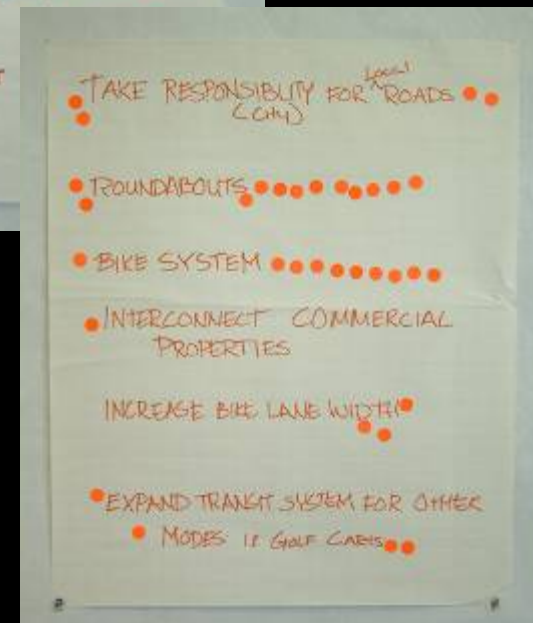 TAKE RESPONSIBLITY FOR LOCAL ROADS
(CITY)
ROUNDABOUTS
BIKE SYSTEM
INTERCONNECT COMMERCIAL
PROPERTIES
INCREASE BIKE LANE WIDTH
EXPAND TRANSIT SYSTEM FOR OTHER
MODES IE GOLF CARTS